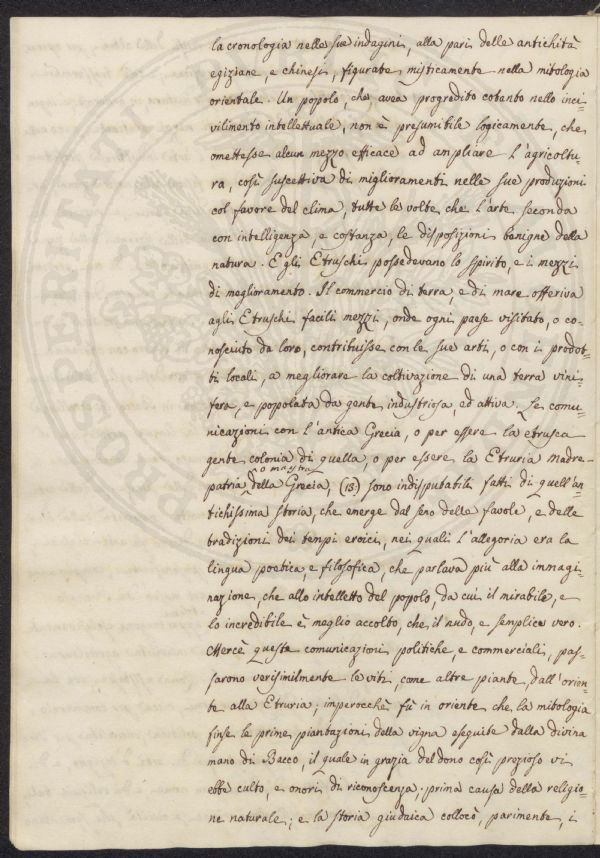 la cronologia nelle sue indagini, alla pari delle antichità
egiziane, e chinesi, figurate misticamente nella mitologia
orientale. Un popolo, che avea progredito cotanto nello inci=
vilimento intellettuale, non è presumibile logicamente, che
omettesse alcun mezzo efficace ad ampliare l'agricoltu=
ra, così suscettiva di miglioramenti nelle sue produzioni
col favore del clima, tutte le volte che l'arte seconda
con intelligenza, e costanza, le disposizioni benigne della
natura. E gli Etruschi possedevano lo spirito, e i mezzi
di meglioramento. Il commercio di terra, e di mare offeriva
agli Etruschi facili mezzi, onde ogni paese visitato, o co=
nosciuto da loro, contribuisse con le sue arti, o con i prodot=
ti locali, a megliorare la coltivazione di una terra vini=
fera, e popolata da gente industriosa, ed attiva. Le comu=
nicazioni con l'antica Grecia, o per essere la etrusca
gente colonia di quella, o per essere la Etruria Madre=
o maestra
patria della Grecia, (13.) sono indisputabili fatti di quell'an=
tichissima storia, che emerge dal seno delle favole, e delle
tradizioni dei tempi eroici, nei quali l'allegoria era la
lingua poetica, e filosofica, che parlava più alla immagi=
nazione, che allo intelletto del popolo, da cui il mirabile, e
lo incredibile è meglio accolto, che il nudo, e semplice vero.
Mercè queste comunicazioni politiche, e commerciali, pas=
sarono verisimilmente le viti, come altre piante, dall'orien=
te alla Etruria; imperocchè fù in oriente che la mitologia
finse le prime piantazioni della vigna eseguite dalla divina
mano di Bacco, il quale in grazia del dono così prezioso vi
ebbe culto, e onori di riconoscenza, prima causa della religio=
ne naturale; e la storia giudaica collocò, parimente, i
PROSPERITATI